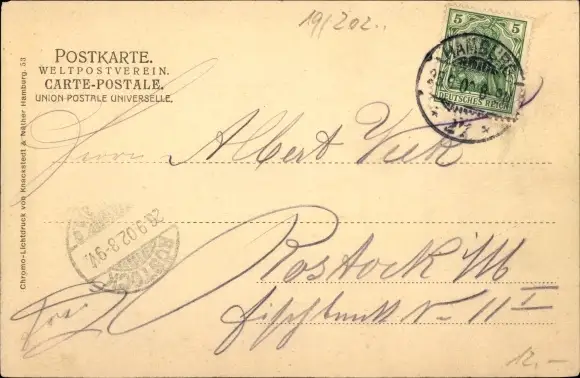 19/202..
POSTKARTE.
WELTPOSTVEREIN.
CARTE-POSTALE.
UNION POSTALE UNIVERSELLE.
5 5
DEUTSCHES REICH
HAMBURG
Herrn Albert Vick
26.9.02.8-9V.
ROSTOCK
Rostock i/M
II
12.-
Chromo-Lichtdruck von Knackstedt & Näther Hamburg. 53